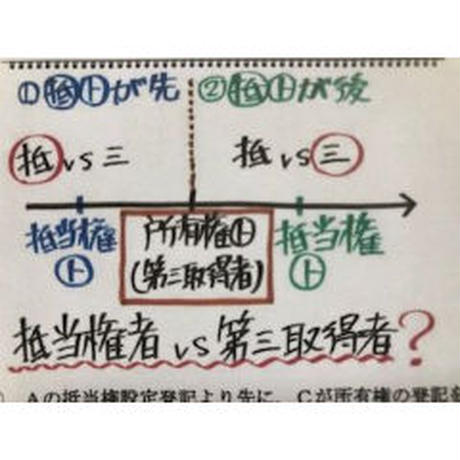 ①抵トが先 ②抵トが後
抵vs三 抵vs三
抵当権 所有権ト 抵当権
ト (第三取得者) ト
抵当権者vs第三取得者?
Aの抵当権設定登記より先に、Cが所有権の登記を